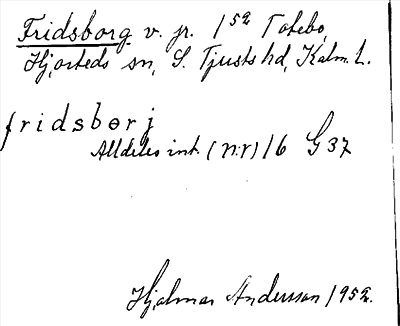 Fridsborg v. fr. 1⁵² Totebo,
Hjorteds sn, S. Tjusts hd, Kalm. l.
fridsbɵrj
Alldeles int. (n:r) 16 G 37
Hjalmar Andersson 1952.